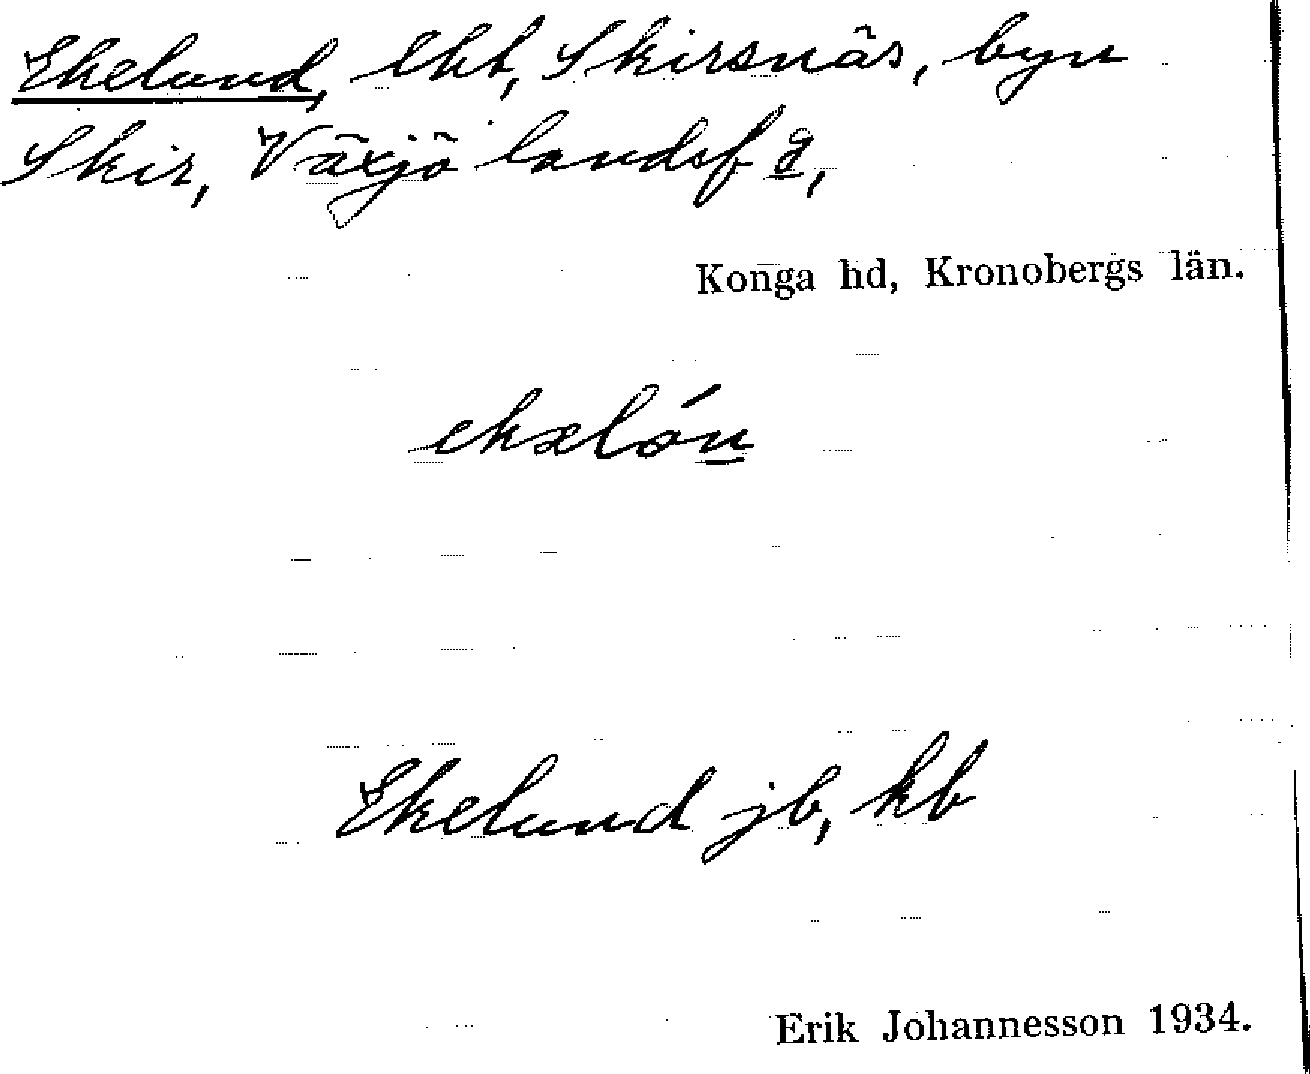 Ekelund, lht, Skirsnäs, byn
Skir, Växjö landsf g,
Konga hd, Kronobergs län.
ekəlón
Ekelund jb, kb
Erik Johannesson 1934.